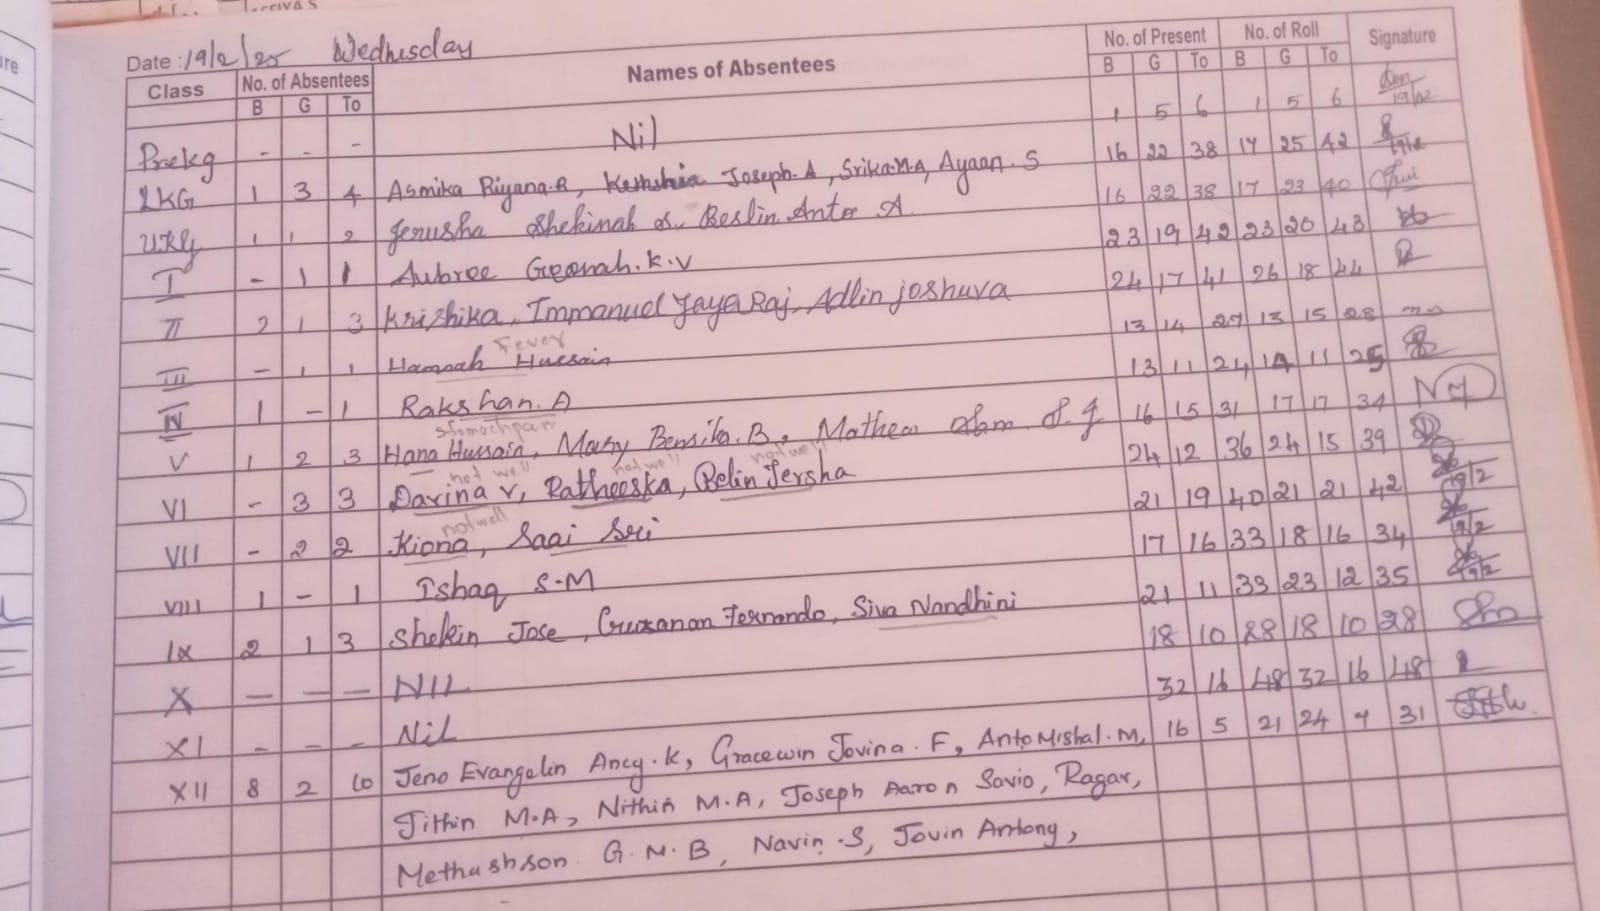 Date : 19/2/25 Wednesday
Class No. of Absentees Names of Absentees No. of Present No. of Roll Signature
B G To B G To B G To
Prekg - - - Nil 1 5 6 1 5 6
LKG 1 3 4 Asmika Riyana.R, Joseph.A, Srika.M.A, Ayaan.S 16 22 38 17 25 42
UKG 1 1 2 Jerusha Shekinah S., Beslin Anto A. 16 22 38 17 23 40
I - 1 1 Aubree K.V 23 19 42 23 20 43
II 2 1 3 Krizhika, Immanuel Jaya Raj, Adlin joshuva 24 17 41 26 18 44
Fever
III - 1 1 Hamnah Hussain 13 14 27 13 15 28
IV 1 - 1 Rakshan. A 13 11 24 14 11 25
stomachpain
V 1 2 3 Hana Hussain, Mary B., Mathew Sam S.J 16 15 31 17 17 34
not well not well not well
VI - 3 3 Davina V, Ratheeska, Belin Jersha 24 12 36 24 15 39
not well
VII - 2 2 Kiona, Saai Sri 21 19 40 21 21 42
VIII 1 - 1 Ishaq S.M 17 16 33 18 16 34
IX 2 1 3 Shekin Jose, Fernando, Siva Nandhini 21 11 33 23 12 35
X — — — NIL 18 10 28 18 10 28
XI - - - Nil 32 16 48 32 16 48
XII 8 2 10 Jeno Evangelin Ancy.K, Gracewin Jovina.F, Anto Mishal.M, 16 5 21 24 7 31
Jithin M.A, Nithin M.A, Joseph Aaron Savio, Ragar,
Methushson. G.M.B, Navin.S, Jovin Antony,